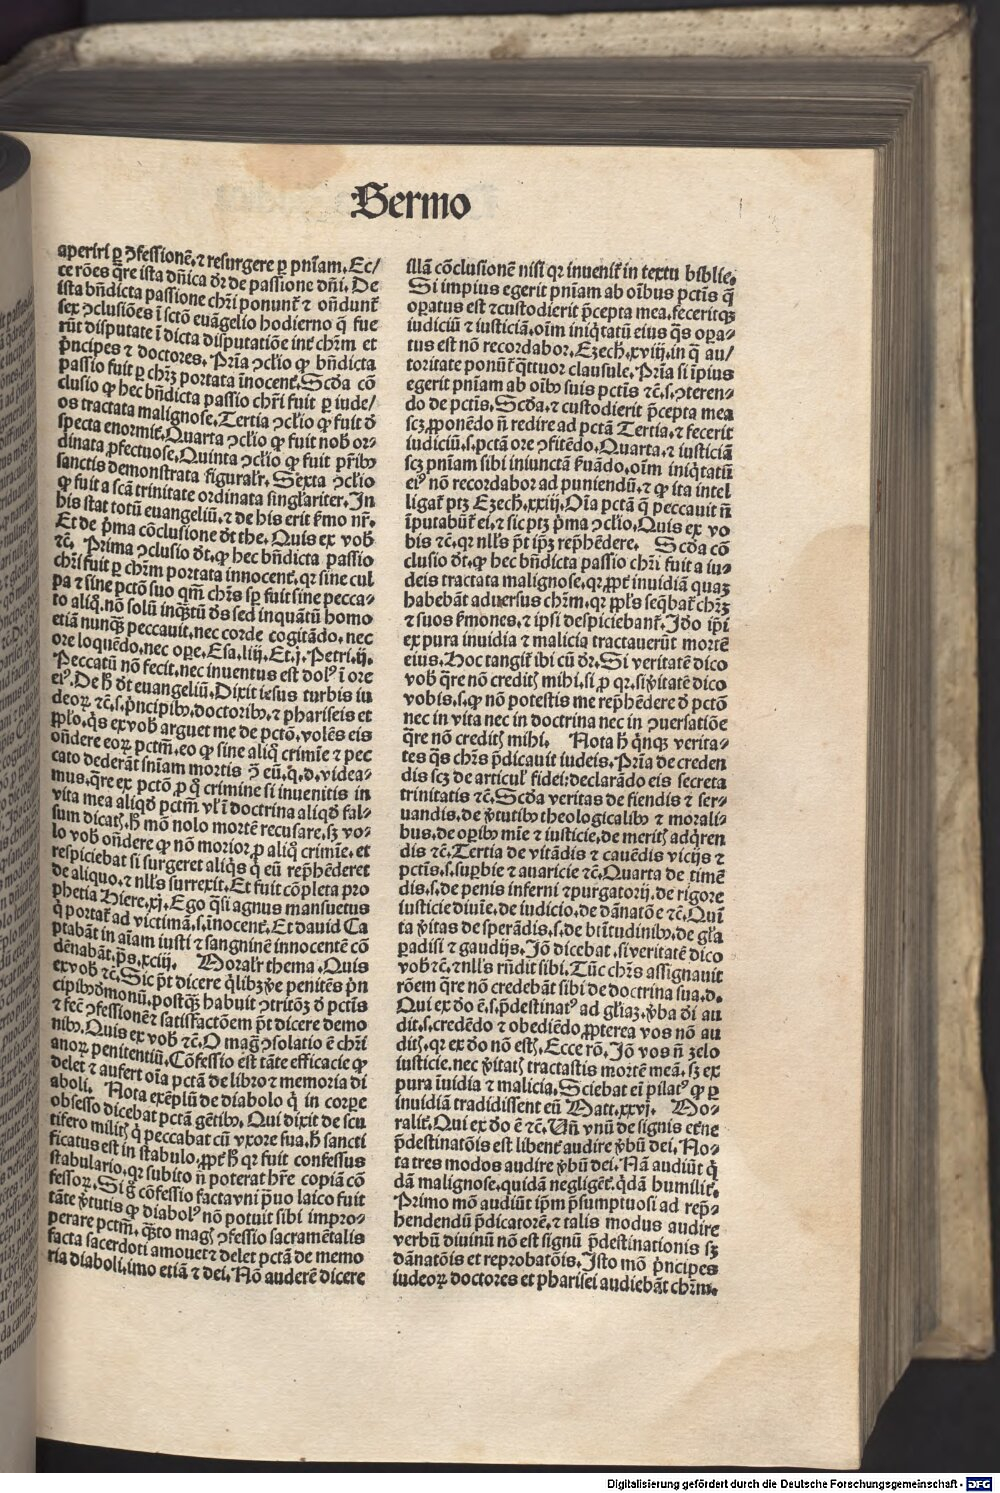 Sermo
aperiri ꝑ ↄfessionē.⁊ resurgere ꝑ pn̄iam.Ec/
ce rōes q̄re ista dn̄ica d̄r de passione dn̄i. De
ista bn̄dicta passione chr̄i ponunt᷑ ⁊ on̄dunt᷑
sex ↄclusiōes ī sctō euāgelio hodierno q̄ fue
rūt disputate ī dicta disputatiōe int᷑ chr̄m et
p̄ncipes ⁊ doctores. Pr̄ia ↄcl̄io ꝙ bn̄dicta
passio fuit ꝑ chr̄ꝫ portata īnocent᷑.Scd̄a cō
clusio ꝙ hec bn̄dicta passio chr̄i fuit ꝑ iude/
os tractata malignose.Tertia ↄcl̄io ꝙ fuit d̄
specta enormit᷑.Quarta ↄcl̄io ꝙ fuit nob̄ or-
dinata ꝓfectuose.Quinta ↄcl̄io ꝙ fuit pr̄ibꝰ
sanctis demonstrata figural̄r. Sexta ↄcl̄io
ꝙ fuit a scā trinitate ordinata singl̄ariter.In
his stat totū euangeliū.⁊ de his erit s̄mo nr̄.
Et de p̄ma cōclusione d̄t the. Quis ex vob̄
⁊c. Prima ↄclusio d̄t.ꝙ hec bn̄dicta passio
chr̄i fuit ꝑ chr̄m portata innocent᷑.qꝛ sine cul
pa ⁊ sine pctō suo qm̄ chr̄s sꝑ fuit sine pecca-
to aliq̄.nō solū inq̄ꝫtū d̄s sed inquātū homo
etiā nunqꝫ peccauit.nec corde cogitādo.nec
ore loquēdo.nec oꝑe.Esa.liij.Et.j.Petri.ij.
Peccatū nō fecit.nec inuentus est dolꝰ ī ore
eiꝰ.De h̄ d̄t euangeliū.Dixit iesus turbis iu
deoꝝ ⁊c̄.s.p̄ncipibꝰ.doctoribꝰ.⁊ phariseis et
ꝓplo.q̄s ex vob̄ arguet me de pctō.volēs eis
on̄dere eoꝝ pctm̄.eo ꝙ sine aliq̄ crimīe ⁊ pec
cato dederāt sn̄iam mortis ↄ̄ eū.q.d.videa-
mus.q̄re ex pctō ꝓ q̄ crimine si inuenitis in
vita mea aliqd̄ pctm̄ vl̄ ī doctrina aliqd̄ fal-
sum dicatꝭ.h̄ mō nolo mortē recusare.sꝫ vo-
lo vob̄ on̄dere ꝙ nō morior ꝓ aliq̄ crimīe.et
respiciebat si surgeret aliq̄s q̄ eū rep̄hēderet
de aliquo.⁊ nll̄s surrexit.Et fuit cōpleta pro
phetia Hiere.xj.Ego q̄si agnus mansuetus
q̄ portat᷑ ad victimā.s.īnocent᷑.Et dauid Ca
ptabāt in aīam iusti ⁊ sanguinē innocentē cō
dēnabāt.p̄s.xciij. Moral̄r thema.Quis
ex vob̄ ⁊c̄.Sic p̄t dicere q̄libꝫ v̄e penitēs p̄n
cipibꝰ demonū.postqꝫ habuit ↄtritōꝫ d̄ pctīs
⁊ fec̄ ↄfessionē ⁊ satisfactōem p̄t dicere demo
nibꝰ.Quis ex vob̄ ⁊c̄.O magᷓ ↄsolatio ē chr̄i
anoꝝ penitentiū.Cōfessio est tāte efficacie ꝙ
delet ⁊ aufert oīa pctā de libro ⁊ memoria di
aboli. Nota exēplū de diabolo q̄ in corꝑe
obsesso dicebat pctā gētibꝰ. Qui dixit de scu
tifero militꝭ q̄ peccabat cū vxore sua.h̄ sancti
ficatus est in stabulo.ꝓpt᷑ h̄ qꝛ fuit confessus
stabulario.qꝛ subito n̄ poterat hr̄e copiā cō
fessoꝝ. Si g̊ cōfessio facta vni p̄uo laico fuit
tāte v̄tutis ꝙ diabolꝰ nō potuit sibi impro-
perare pctm̄. qᷓsto magꝭ ↄfessio sacramētalis
facta sacerdoti amouet ⁊ delet pctā de memo
ria diaboli.imo etiā ⁊ dei. Nō auderē dicere
illā cōclusionē nisi qꝛ inuenit᷑ in textu biblie.
Si impius egerit pn̄iam ab oībus pctīs q̄
oꝑatus est ⁊ custodierit p̄cepta mea.feceritqꝫ
iudiciū ⁊ iusticiā.oīm iniq̄tatū eius q̄s oꝑa-
tus est nō recordabor.Ezech̄.xviij.in q̄ au/
toritate ponūt᷑ q̄ttuor clausule.Pr̄ia si īpius
egerit pn̄iam ab oībꝰ suis pctīs ⁊c̄.s.ↄteren-
do de pctīs.Scd̄a.⁊ custodierit p̄cepta mea
scꝫ ꝓponēdo n̄ redire ad pctā Tertia.⁊ fecerit
iudiciū.s.pctā ore ↄfitēdo.Quarta.⁊ iusticiā
scꝫ pn̄iam sibi iniunctā s̄uādo.oīm iniq̄tatū
eiꝰ nō recordabor ad puniendū.⁊ ꝙ ita intel
ligat᷑ ptꝫ Ezech̄.xxiij.Oīa pctā q̄ peccauit n̄
īputabūt᷑ ei.⁊ sic ptꝫ p̄ma ↄcl̄io.Quis ex vo
bis ⁊c̄.qꝛ nll̄s p̄t ip̄ꝫ rep̄hēdere. Scd̄a cō
clusio d̄t.ꝙ hec bn̄dicta passio chr̄i fuit a iu-
deis tractata malignose.qꝛ.ꝓpt᷑ inuidiā quaꝫ
habebāt aduersus chr̄m.qꝛ ꝓpl̄s seq̄bat᷑ chr̄ꝫ
⁊ suos s̄mones.⁊ ipsi despiciebant᷑.Iō ip̄i
ex pura inuidia ⁊ malicia tractauerūt mortē
eius.Hoc tangit᷑ ibi cū d̄r.Si veritatē dico
vob̄ q̄re nō creditꝭ mihi.si ꝓ qꝛ.si v̄itatē dico
vobis.s.ꝙ nō potestis me rep̄hēdere d̄ pctō
nec in vita nec in doctrina nec in ↄuersatiōe
q̄re nō creditꝭ mihi. Nota h̄ q̄nqꝫ verita-
tes q̄s chr̄s p̄dicauit iudeis.Pr̄ia de creden
dis scꝫ de articul̄ fidei:declarādo eis secreta
trinitatis ⁊c̄.Scd̄a veritas de fiendis ⁊ ser-
uandis.de v̄tutibꝰ theologicalibꝰ ⁊ morali-
bus.de oꝑibꝰ mīe ⁊ iusticie.de meritꝭ adq̄ren
dis ⁊c̄.Tertia de vitādis ⁊ cauēdis vicijs ⁊
pctīs.s.suꝑbie ⁊ auaricie ⁊c̄.Quarta de timē
dis.s.de penis inferni ⁊ purgatorij.de rigore
iusticie diuīe.de iudicio.de dānatōe ⁊c̄.Quī
ta v̄itas de sperādis.s.de bt̄itudinibꝰ.de gl̄a
ꝑadisi ⁊ gaudijs.Iō dicebat.si veritatē dico
vob̄ ⁊c̄.⁊ nll̄s rn̄dit sibi.Tūc chr̄s assignauit
rōem q̄re nō credebāt sibi de doctrina sua.d.
Qui ex d̄o ē.s.p̄destinatꝰ ad gl̄iaꝫ.v̄ba d̄i au
dit.s.credēdo ⁊ obediēdo.ꝓpterea vos nō au
ditꝭ.qꝛ ex d̄o nō estꝭ.Ecce rō.Iō vos n̄ zelo
iusticie.nec v̄itatꝭ tractastis mortē meā.sꝫ ex
pura īuidia ⁊ malicia.Sciebat eī pilatꝰ ꝙ ꝑ
inuidiā tradidissent eū Matt.xxvj. Mo-
ralit᷑.Qui ex d̄o ē ⁊c̄.Un̄ vnū de signis et̄ne
p̄destinatōis est libent᷑ audire v̄bū dei.No-
ta tres modos audire v̄bū dei.Nā audiūt q̄
dā malignose.quidā negligēt᷑.q̄dā humilit᷑.
Primo mō audiūt ip̄m p̄sumptuosi ad rep̄-
hendendū p̄dicatorē.⁊ talis modus audire
verbū diuinū nō est signū p̄destinationis sꝫ
dānatōis et reprobatōis.Isto mō p̄ncipes
iudeoꝝ doctores et pharisei audiebāt chr̄m.
Digitalisierung gefördert durch die Deutsche Forschungsgemeinschaft - DFG